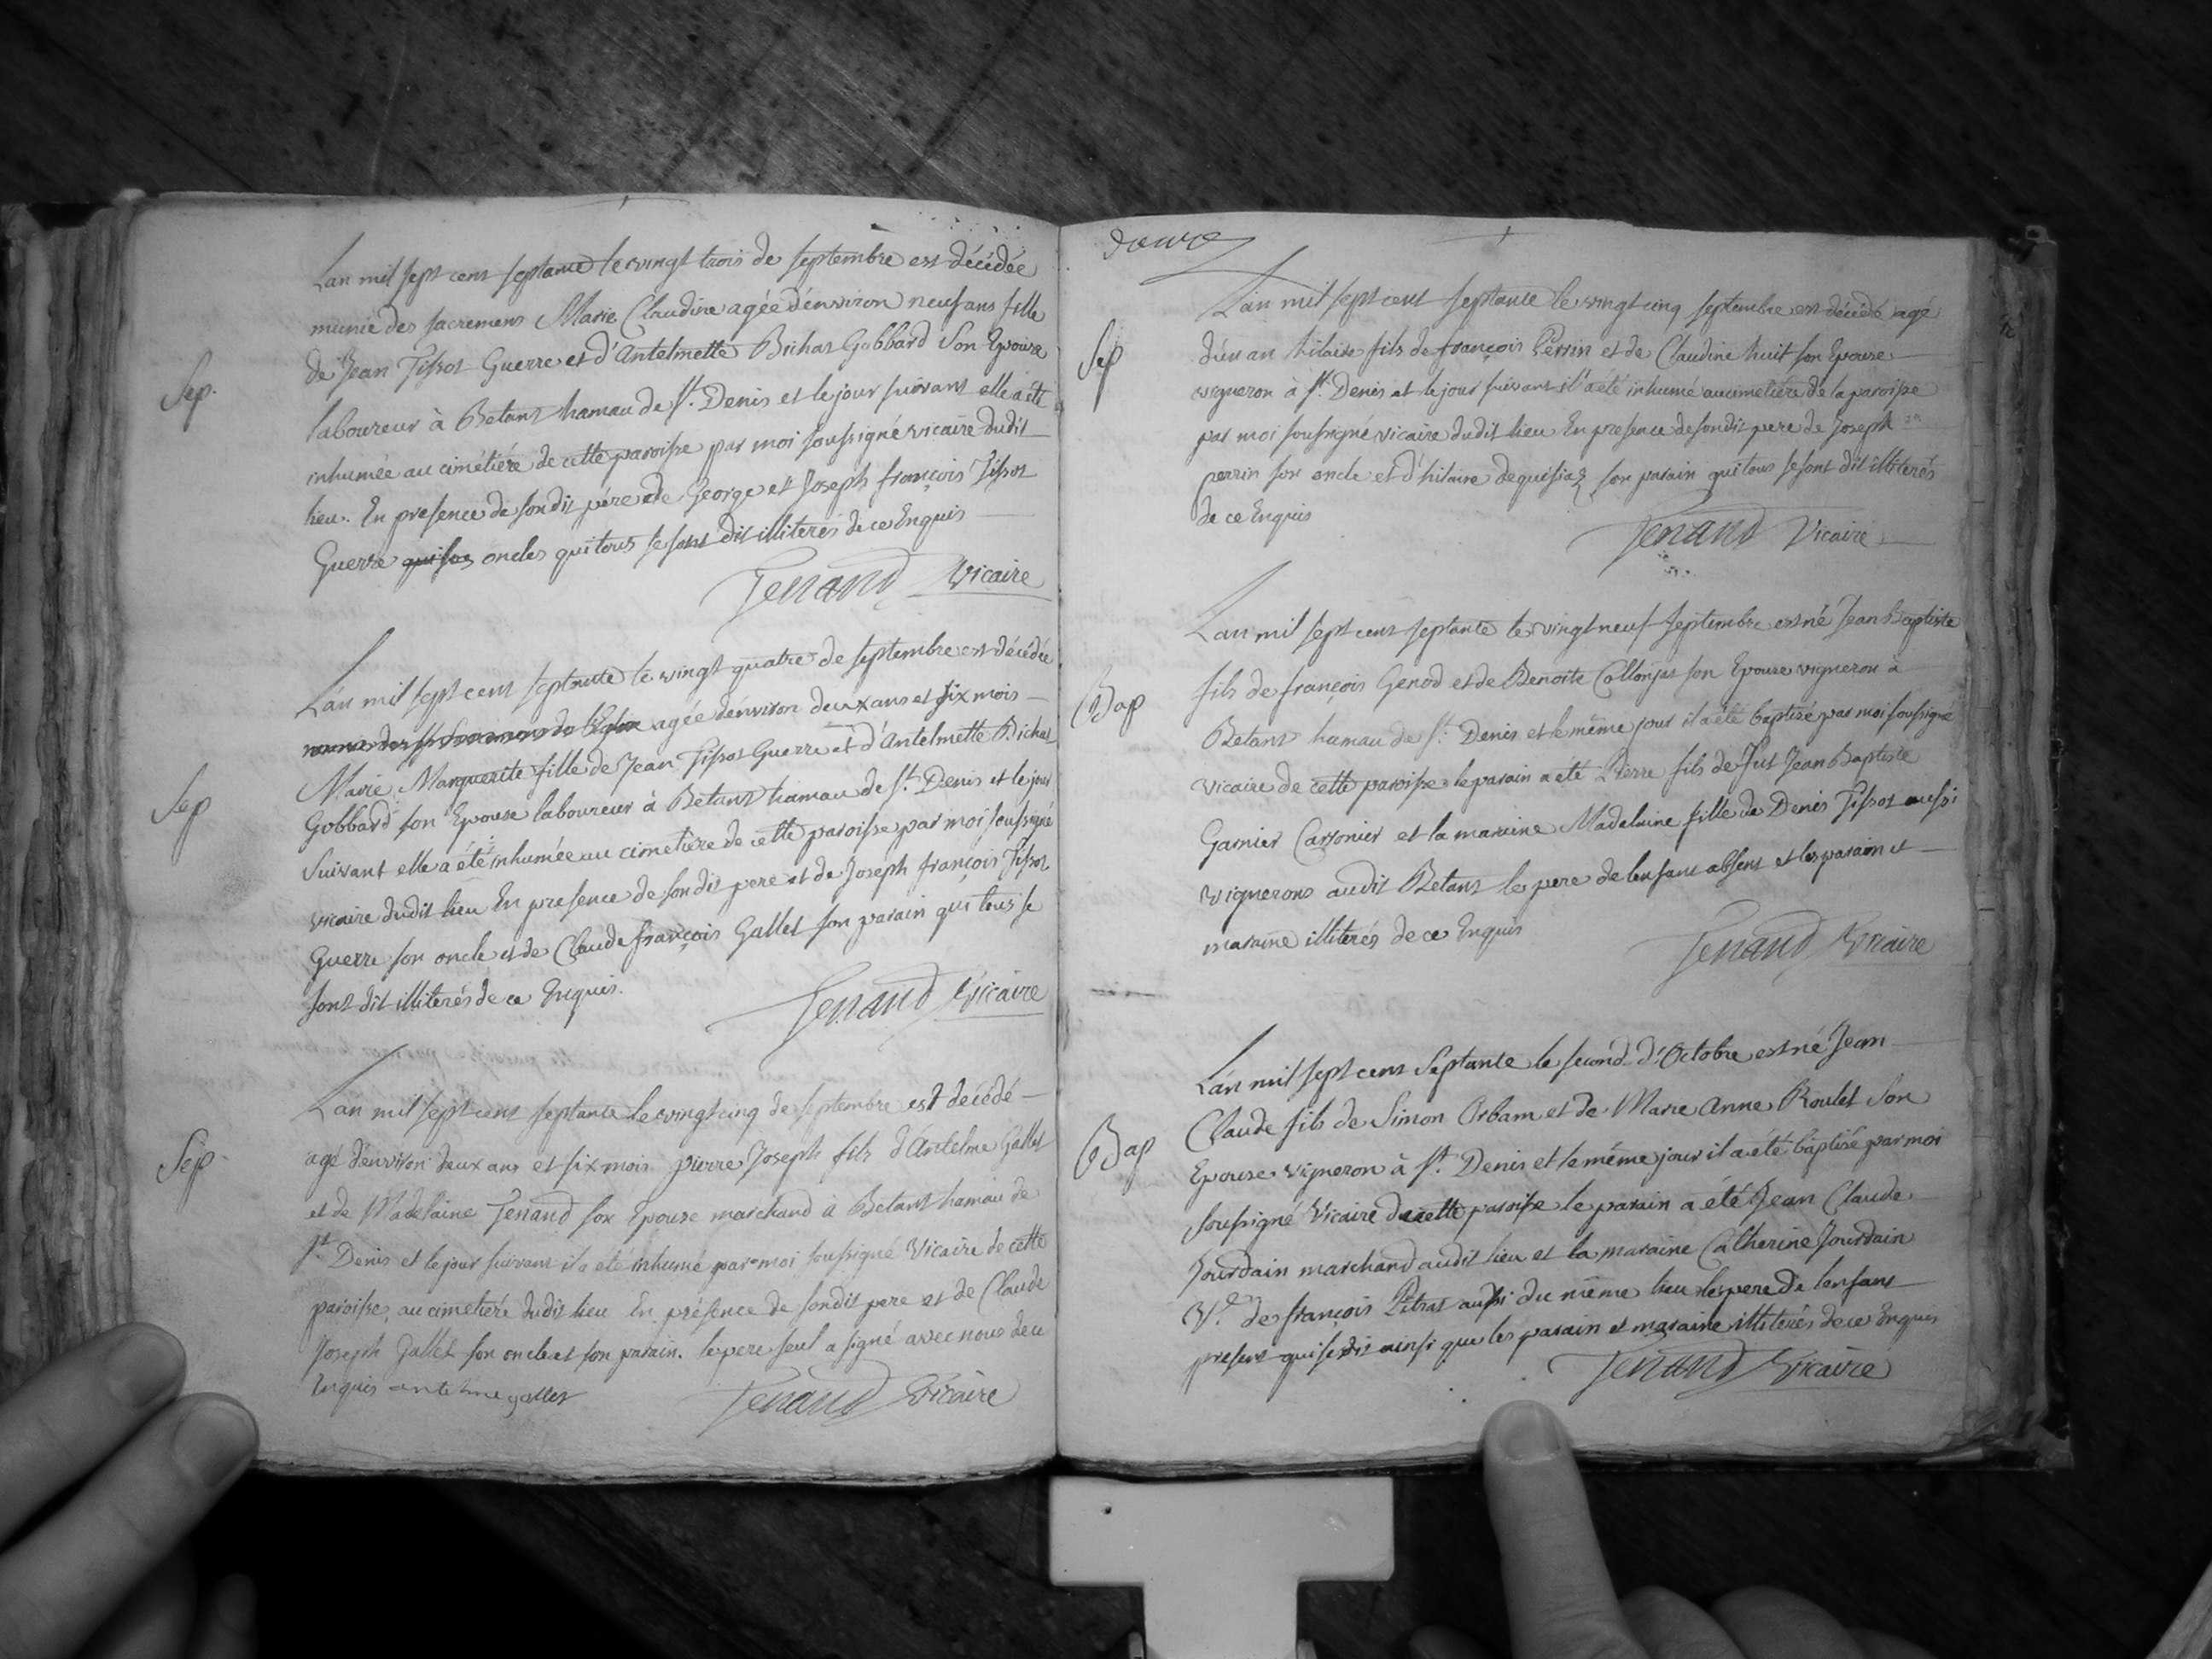 Lan mil sept cent septante le vingt trois de septembre est décédée
munie des sacremens Marie Claudine agée d'environ neuf ans fille
de Jean Tissot Guerre et d'Antelmette Bichat Gobbard son Epouse
Sep.
laboureur à Betant hamau de St. Denis et le jour suivant elle a été
inhumée au cimétiére de cette paroisse par moi soussigné vicaire dudit
lieu. En presence de son dit pére de George et Joseph françois Tissot
Guerre oncles qui tous se sont dit illiterés de ce Enquis
Tenand Vicaire
L'an mil sept cent septante le vingt quatre de septembre est décédée
agée d'environ deux ans et six mois
Marie Marguerite fille de Jean Tissot Guerre et d'Antelmette Bichat
Sep
Gobbard son Epouse laboureur à Betant hamau de St. Denis et le jour
suivant elle a été inhumée au cimetiere de cette paroisse par moi soussigné
vicaire dudit lieu En presence de son dit pere et de Joseph françois Tissot
Guerre son oncle et de Claude françois Gallet son parain qui tous se
sont dit illiterés de ce Enquis.
Tenand Vicaire
Lan mil sept cent septante le vingt cinq de septembre est décédé
Sep.
agé d'environ deux ans et six mois pierre Joseph fils d'Antelme Gallet
et de Madelaine Tenand son Epouse marchand à Betant hamau de
St. Denis et le jour suivant il a été inhumé par moi soussigné Vicaire de cette
paroisse, au cimetiére dudit lieu En présence de son dit pere et de Claude
Joseph Gallet son oncle et son parain. le pere seul a signé avec nous de ce
Enquis antelme gallet
Tenand Vicaire
douze
L'an mil sept cent septante le vingt cinq septembre est décédé agé
Sep
d'un an hilaire fils de françois Perrin et de Claudine huit son Epouse
vigneron à St. Denis et le jour suivant il a été inhumé au cimetiére de la paroisse
par moi soussigné vicaire dudit lieu En presence de son dit pere de Joseph
perrin son oncle et d'hilaire dequisiaz son parain qui tous se sont dit illiterés
de ce Enquis
Tenand Vicaire
Lan mil sept cent septante le vingt neuf septembre est né Jean Baptiste
Bap
fils de françois Genod et de Benoite Collonjat son Epouse vigneron à
Betant hamau de St. Denis et le même jour il a été baptisé par moi soussigné
vicaire de cette paroisse le parain a eté Pierre fils de Jean Baptiste
Garnier et la maraine Madelaine fille de Denis Tissot aussi
vignerons audit Betant le pere de lenfant absent et les parain et
maraine illiterés de ce Enquis
Tenand Vicaire
L'an mil sept cent Septante le second d'Octobre est né Jean
Bap
Claude fils de Simon Orbam et de Marie Anne Roulet son
Epouse vigneron à St. Denis et le même jour il a été baptisé par moi
soussigné Vicaire de cette paroisse le parain a été Jean Claude
Jourdain marchand audit lieu et la maraine Catherine Jourdain
Ve. de françois Pitrat aussi du même lieu le pere de lenfant
present qui se dit ainsi que les parain et maraine illiterés de ce Enquis
Tenand Vicaire